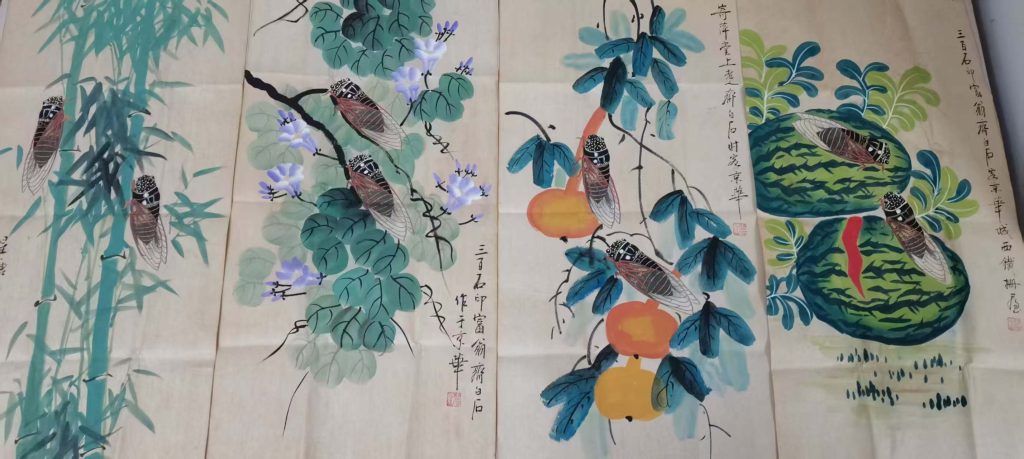 三百石印富翁齊白石
作于京華
寄萍堂上老齊白石时客京華
三百石印富翁齊白石客京華城西鐵柵屋